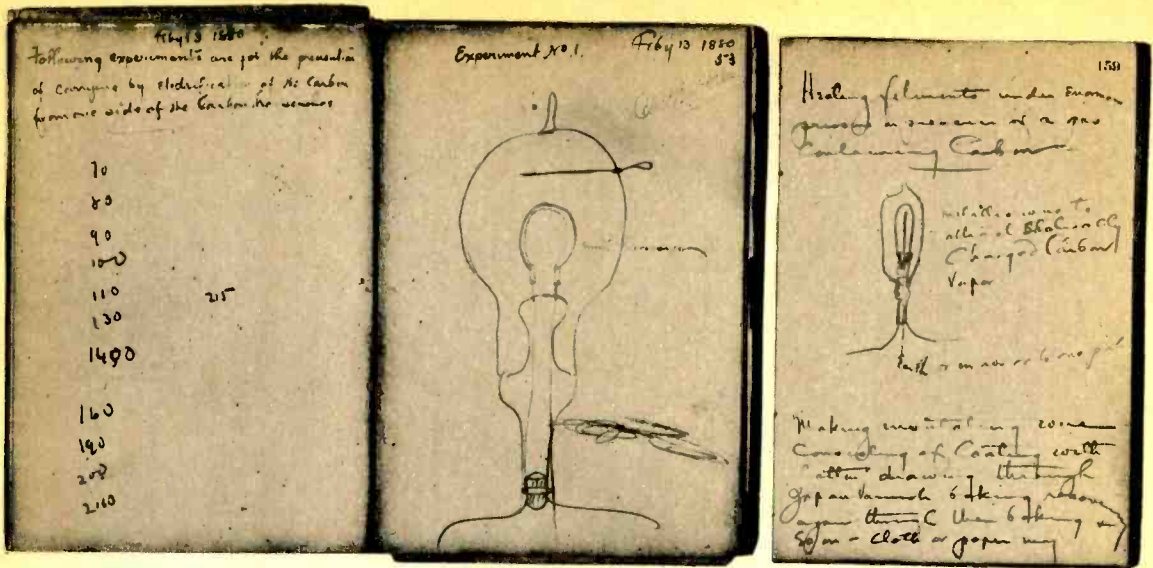 Feby 13 1880
Following experiments are for the prevention
of carrying by Electrification of the Carbon
from one side of the Carbon to
70
80
90
100
110 215
130
1400
160
190
200
2100
Experiment No 1.
Feby 13 1880
53
159
Heating filaments under Enormous
presence of a gas
Containing Carbon
to
Charged Carbon
Vapor
Earth
Making insulating wire
Consisting of Coating with
Cotton drawing through
Japan Varnish baking
again baking
So on - Cloth or paper may